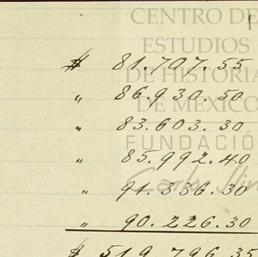 CENTRO DE
ESTUDIOS
$ 81.707.55
DE HISTORIA
" 86.930.50
DE MÉXICO
" 83.603.30
FUNDACIÓ
" 85.992.40
Carlos Slim
" 91.336.30
" 90.226.30
$ 519.796.35